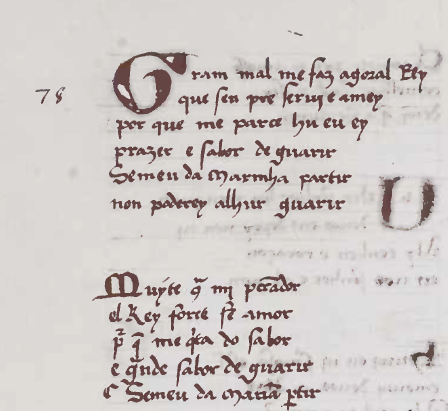 78
Gram mal me faz agoral Rey
que sen pre servi e amey
por que me parce hu eu ey
prazer e sabor de guarir
Semeu da Marinha partir
non poderey alhur guarir
Muyte q̄ mi
el Rey forte amor
p̄ q̄ me do sabor
e q̄nde sabor de guarir
E Semeu da p̄tir